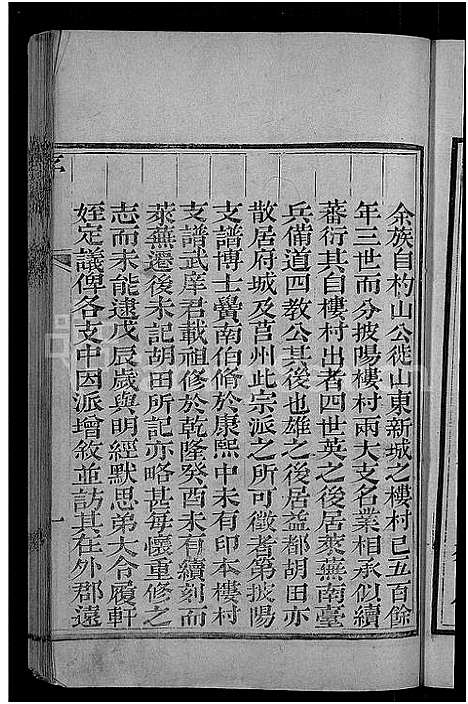 余族自杓山公徙山東新城之樓村已五百餘
年三世而分披陽樓村兩大支名業相承似續
蕃衍其自樓村出者四世英之後居萊蕪南臺
兵備道四教公其後也雄之後居益都胡田亦
散居府城及莒州此宗派之所可徵者第披陽
支譜博士黌南伯脩於康熙中未有印本樓村
支譜武庠君載祖修於乾隆癸酉未有續刻而
萊蕪遷後未記胡田所記亦略甚每懷重修之
志而未能逮戊辰歲與明經默思弟大合履軒
姪定議俾各支中因派增敘並訪其在外郡遠
序
一